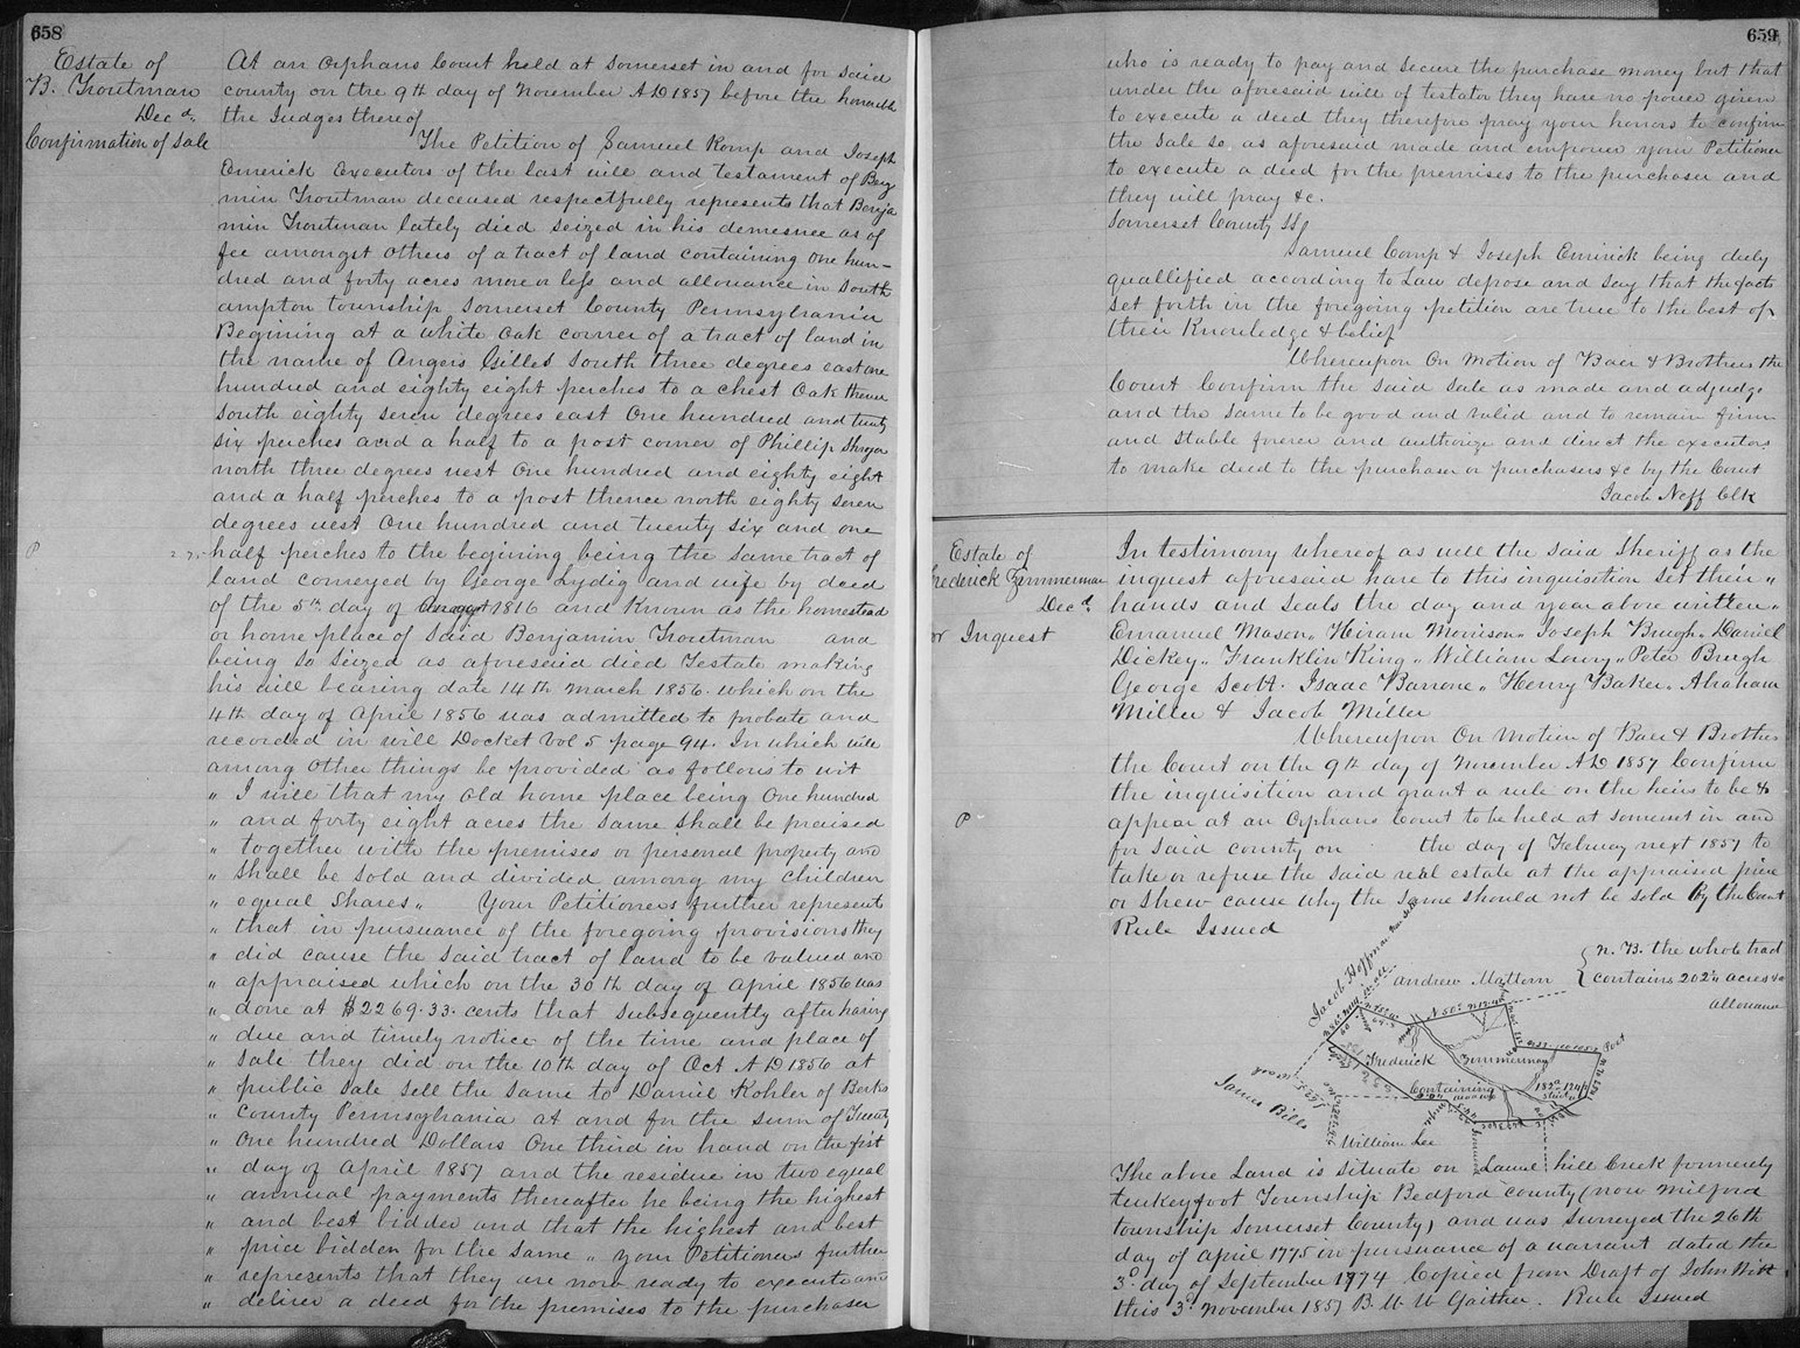 658
Estate of
B. Troutman
Decd.
Confirmation of Sale
At an Orphans Court held at Somerset in and for said
county on the 9th day of November AD 1857 before the honorable
the Judges thereof
The Petition of Samuel Komp and Joseph
Emerick Executors of the last will and testament of Benj
min Troutman deceased respectfully represents that Benja
min Troutman lately died seized in his demesnee as of
fee amongst others of a tract of land containing one hun-
dred and forty acres more or less and allowance in South
ampton township Somerset County Pennsylvania
Begining at a white oak corner of a tract of land in
the name of Angers Gilles South three degrees east one
hundred and eighty eight perches to a chest Oak thence
South eighty seven degrees east One hundred and twenty
six perches and a half to a post corner of Phillip
north three degrees west One hundred and eighty eight
and a half perches to a post thence north eighty seven
degrees west One hundred and twenty six and one
P
half perches to the begining being the same tract of
land conveyed by George Lydig and wife by deed
of the 5th day of August 1816 and Known as the homestead
or home place of said Benjamin Troutman and
being so seized as aforesaid died Testate making
his will bearing date 14th March 1856. which on the
4th day of April 1856 was admitted to probate and
recorded in will Docket Vol 5 page 94. In which will
among other things he provided as follows to wit
" I will that my old home place being One hundred
" and forty eight acres the same shall be praised
" together with the premises or personal property and
" shall be sold and divided among my children
" equal shares " Your Petitioners further represents
" that in pursuance of the foregoing provisions they
" did cause the said tract of land to be valued and
" appraised which on the 30th day of April 1856 was
" done at $2269.33. cents that subsequently after having
" due and timely notice of the time and place of
" sale they did on the 10th day of Oct AD 1856 at
" public sale sell the same to Daniel Kohler of Berks
" county Pennsylvania at and for the sum of Twenty
" one hundred Dollars One third in hand on the first
" day of April 1857 and the residue in two equal
" annual payments thereafter he being the highest
" and best bidder and that the highest and best
" price bidden for the same " your Petitioners further
" represents that they are now ready to execute and
" deliver a deed for the premises to the purchaser
659
who is ready to pay and secure the purchase money but that
under the aforesaid will of testator they have no power given
to execute a deed they therefore pray your honors to confirm
the sale so as aforesaid made and empower your Petitioner
to execute a deed for the premises to the purchaser and
they will pray &c.
Somerset County SS
Samuel Comp & Joseph Emirick being duly
quallified according to Law depose and say that the facts
set forth in the foregoing petition are true to the best of
their Knowledge & belief
Whereupon On Motion of Baer & Brothers the
Court Confirm the said sale as made and adjudge
and the same to be good and valid and to remain firm
and stable forever and authorize and direct the executors
to make deed to the purchaser or purchasers &c by the Court
Jacob Neff Clk
Estate of
Frederick Zimmerman
Decd.
or Inquest
In testimony whereof as well the said Sheriff as the
inquest aforesaid have to this inquisition set their "
hands and seals the day and year above written "
Emanuel Mason " Hiram Morrison " Joseph Brugh " Daniel
Dickey " Franklin King " William Lowry " Peter Brugh
George Scott. Isaac Barrone " Henry Baker " Abraham
Miller & Jacob Miller
Whereupon On Motion of Baer & Brothers
the Court on the 9th day of November AD 1857 Confirm
the inquisition and grant a rule on the heirs to be &
P
appear at an Orphans Court to be held at Somerset in and
for said county on the day of February next 1857 to
take or refuse the said real estate at the appraised price
or shew cause why the same should not be sold By the Court
Rule Issued
N. B. the whole tract
contains 202¼ acres &
allowance
Jacob Hoffman
Andrew Mattern
Post
Frederick Zimmerman
Containing
James Bills
William Lee
The above Land is situate on Laurel hill Creek formerely
turkeyfoot Township Bedford county (now Milford
township Somerset County) and was Surveyed the 26th
day of April 1775 in pursuance of a warrant dated the
3d. day of September 1774 Copied from Draft of John Witt
this 3d. November 1857 B. W. W Gaither. Rule Issued